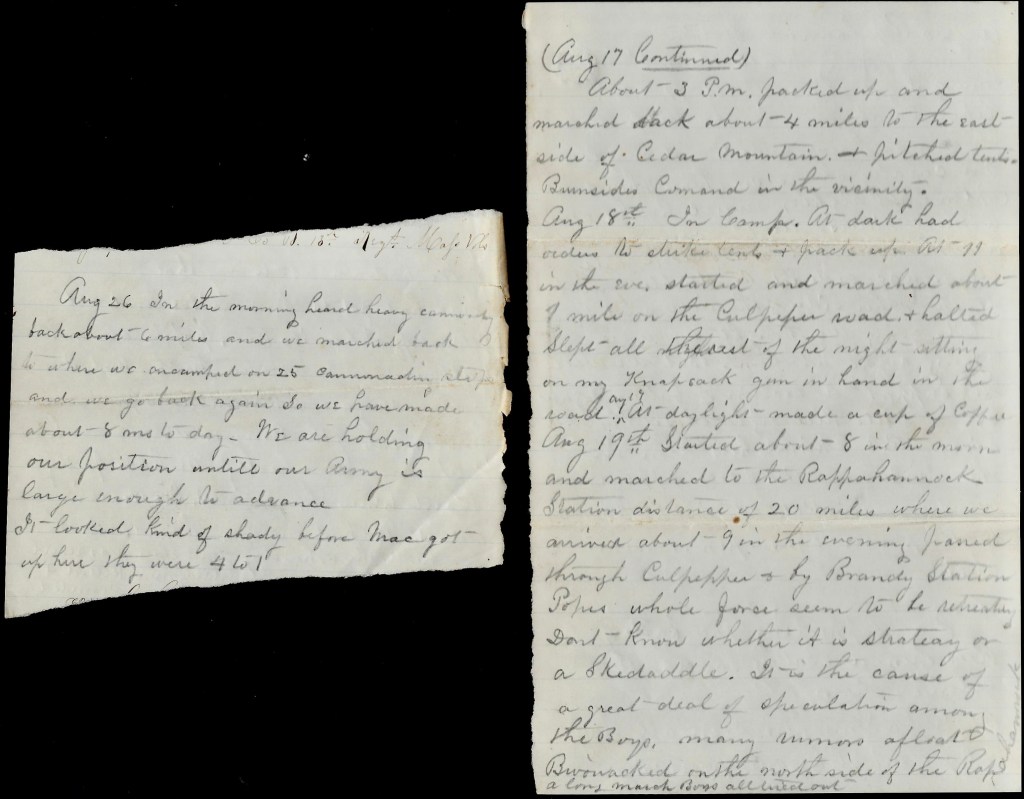 Regt. Mass Vols
Aug 26 In the morning heard heavy
back about 6 miles and we marched back
to where we encamped on 25 cannonadin
and we go back again So we have made
about 8 ms to day - We are holding
our position untill our Army is
large enough to advance
It looked kind of shady before Mac got
up here they were 4 to 1
(Aug 17 Continued)
About 3 P.m. packed up and
marched back about 4 miles to the east
side of Cedar Mountain. + pitched tents.
Burnsides Comand in the vicinity.
Aug 18st In Camp. At dark had
orders to strike tents + pack up At 11
in the eve. started and marched about
1 mile on the Culpeper road, + halted
Slept all the rest of the night sitting
on my Knapsack gun in hand in the
road. At daylight made a cup of Coffee
Aug 19th Started about 8 in the morn
and marched to the Rappahannock
Station distance of 20 miles where we
arrived about 9 in the evening passed
through Culpepper & by Brandy Station
Popes whole force seem to be retreating
Dont Know whether it is strategy or
a Skedaddle. It is the cause of
a great deal of speculation among
the Boys, many rumors afloat
Bivouacked on the north side of the Rap
hannock
a long march Boys all tired out